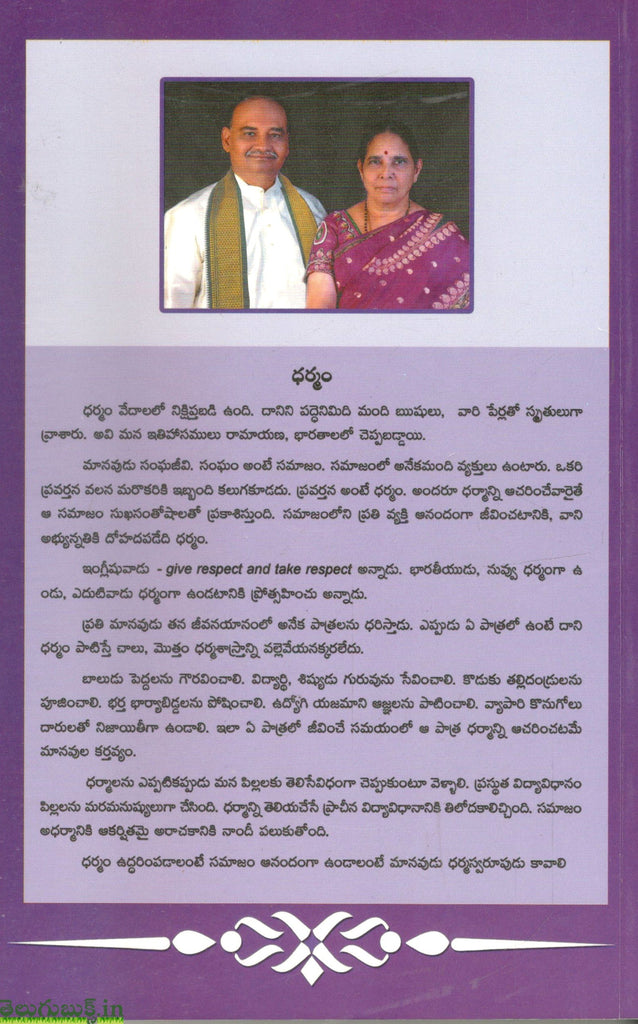 ధర్మం
ధర్మం వేదాలలో నిక్షిప్తబడి ఉంది. దానిని పద్ధెనిమిది మంది ఋషులు, వారి పేర్లతో స్మృతులుగా
వ్రాశారు. అవి మన ఇతిహాసములు రామాయణ, భారతాలలో చెప్పబడ్డాయి.
మానవుడు సంఘజీవి. సంఘం అంటే సమాజం. సమాజంలో అనేకమంది వ్యక్తులు ఉంటారు. ఒకరి
ప్రవర్తన వలన మరొకరికి ఇబ్బంది కలుగకూడదు. ప్రవర్తన అంటే ధర్మం. అందరూ ధర్మాన్ని ఆచరించేవారైతే
ఆ సమాజం సుఖసంతోషాలతో ప్రకాశిస్తుంది. సమాజంలోని ప్రతి వ్యక్తి ఆనందంగా జీవించటానికి, వాని
అభ్యున్నతికి దోహదపడేది ధర్మం.
ఇంగ్లీషువాడు - give respect and take respect అన్నాడు. భారతీయుడు, నువ్వు ధర్మంగా ఉ
ండు, ఎదుటివాడు ధర్మంగా ఉండటానికి ప్రోత్సహించు అన్నాడు.
ప్రతి మానవుడు తన జీవనయానంలో అనేక పాత్రలను ధరిస్తాడు. ఎప్పుడు ఏ పాత్రలో ఉంటే దాని
ధర్మం పాటిస్తే చాలు, మొత్తం ధర్మశాస్త్రాన్ని వల్లెవేయనక్కరలేదు.
బాలుడు పెద్దలను గౌరవించాలి. విద్యార్థి, శిష్యుడు గురువును సేవించాలి. కొడుకు తల్లిదండ్రులను
పూజించాలి. భర్త భార్యాబిడ్డలను పోషించాలి. ఉద్యోగి యజమాని ఆజ్ఞలను పాటించాలి. వ్యాపారి కొనుగోలు
దారులతో నిజాయితీగా ఉండాలి. ఇలా ఏ పాత్రలో జీవించే సమయంలో ఆ పాత్ర ధర్మాన్ని ఆచరించటమే
మానవుల కర్తవ్యం.
ధర్మాలను ఎప్పటికప్పుడు మన పిల్లలకు తెలిసేవిధంగా చెప్పుకుంటూ వెళ్ళాలి. ప్రస్తుత విద్యావిధానం
పిల్లలను మరమనుష్యులుగా చేసింది. ధర్మాన్ని తెలియచేసే ప్రాచీన విద్యావిధానానికి తిలోదకాలిచ్చింది. సమాజం
అధర్మానికి ఆకర్షితమై అరాచకానికి నాందీ పలుకుతోంది.
ధర్మం ఉద్ధరింపడాలంటే సమాజం ఆనందంగా ఉండాలంటే మానవుడు ధర్మస్వరూపుడు కావాలి
తెలుగుబుక్స్.in